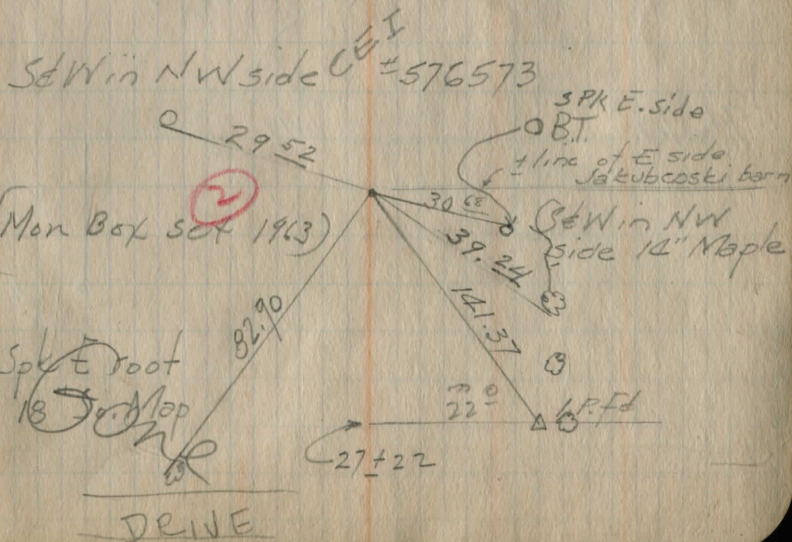 CEI
S&W in NW side ±576573
SPK E. side
B.T.
29 52
± line of E side
Jakubcoski barn
2
30 68
(Mon Box set 1963)
S&W in NW
side 14" Maple
39.24
141.37
82.90
Spk E root
18
Map
22 0
I.P. Fd
27 ± 22
DRIVE